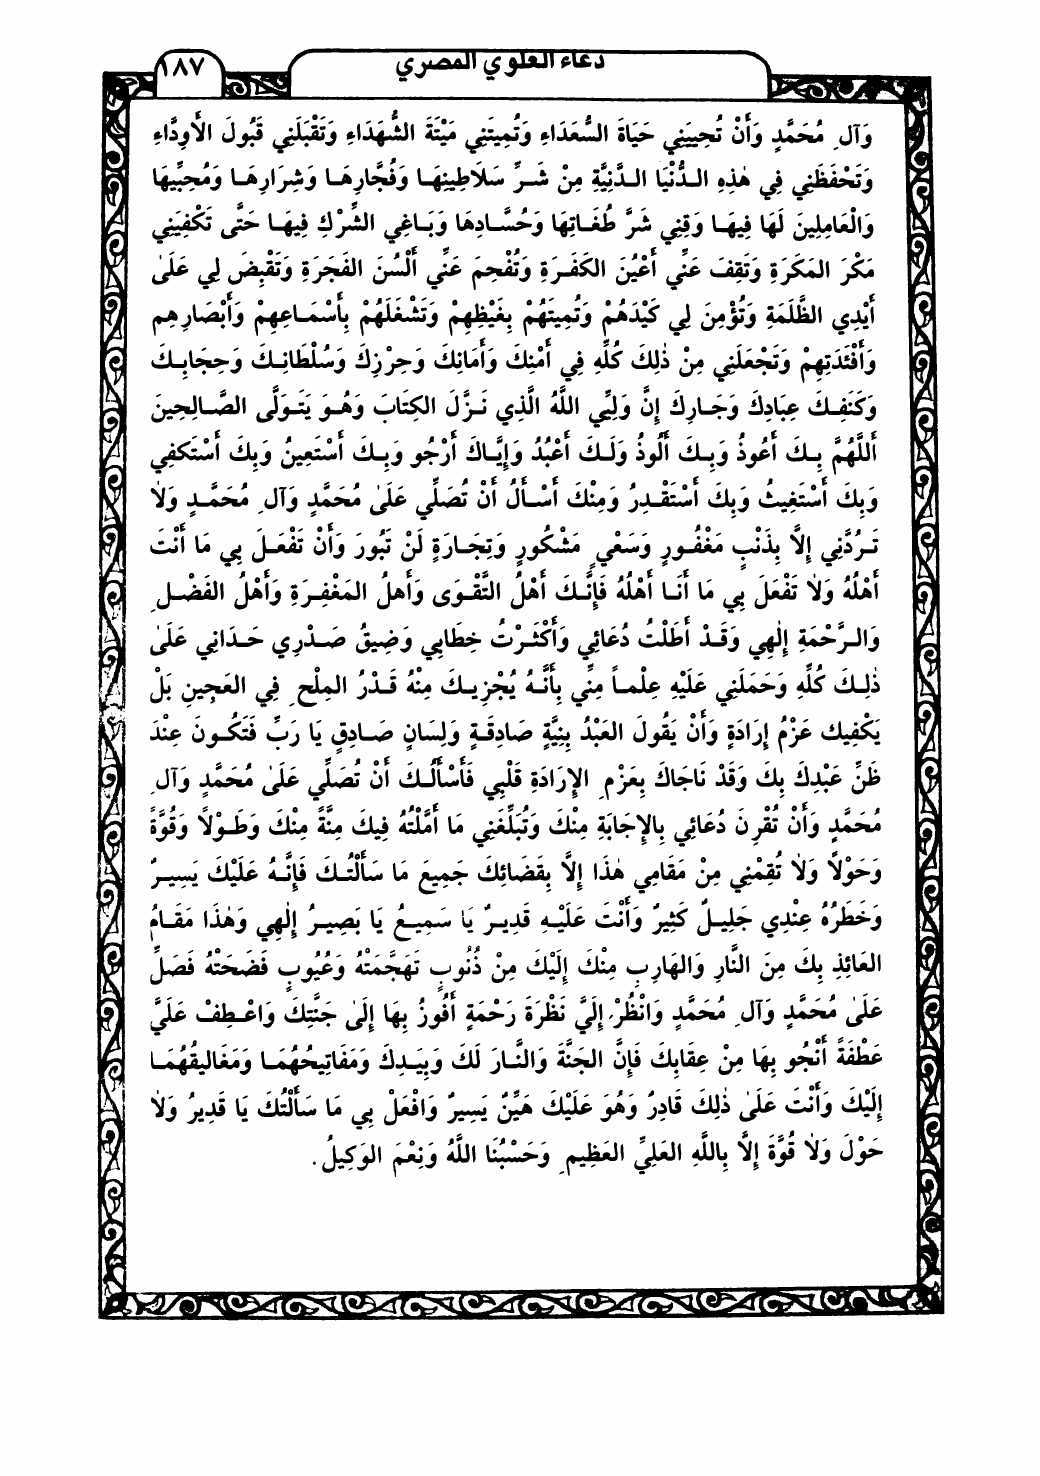 ١٨٧
دعاء العلوي المصري
وَآلِ مُحَمَّدٍ وَأَنْ تُحْيِيَنِي حَيَاةَ السُّعَدَاءِ وَتُمِيتَنِي مَيْتَةَ الشُّهَدَاءِ وَتَقْبَلَنِي قَبُولَ الأَوِدَّاءِ
وَتَحْفَظَنِي فِي هٰذِهِ الـدُّنْيَا الـدَّنِيَّةِ مِنْ شَـرِّ سَلَاطِينِهَـا وَفُجَّارِهَـا وَشِرَارِهَـا وَمُحِبِّيهَا
وَالْعَامِلِينَ لَهَا فِيهَـا وَقِنِي شَرَّ طُغَـاتِهَا وَحُسَّـادِهَا وَبَـاغِي الشِّرْكِ فِيهَـا حَتَّى تَكْفِيَنِي
مَكْرَ المَكَرَةِ وَتَقِفَ عَنِّي أَعْيُنَ الكَفَرَةِ وَتُفْحِمَ عَنِّي أَلْسُنَ الفَجَرَةِ وَتَقْبِضَ لِي عَلَىٰ
أَيْدِي الظَّلَمَةِ وَتُؤْمِنَ لِي كَيْدَهُمْ وَتُمِيتَهُمْ بِغَيْظِهِمْ وَتَشْغَلَهُمْ بِأَسْمَـاعِهِمْ وَأَبْصَارِهِم
وَأَفْئَدَتِهِمْ وَتَجْعَلَنِي مِنْ ذٰلِكَ كُلِّهِ فِي أَمْنِكَ وَأَمَانِكَ وَحِرْزِكَ وَسُلْطَانِـكَ وَحِجَابِـكَ
وَكَنَفِـكَ عِبَادِكَ وَجَـارِكَ إِنَّ وَلِيِّي اللَّهُ الَّذِي نَـزَّلَ الكِتَابَ وَهُـوَ يَتَـوَلَّى الصَّـالِحِينَ
أَللَّهُمَّ بِـكَ أَعُوذُ وَبِـكَ أَلُوذُ وَلَـكَ أَعْبُدُ وَإِيَّـاكَ أَرْجُو وَبِـكَ أَسْتَعِينُ وَبِكَ أَسْتَكفِي
وَبِكَ أَسْتَغِيثُ وَبِكَ أَسْتَقْـدِرُ وَمِنْكَ أَسْـأَلُ أَنْ تُصَلِّي عَلَىٰ مُحَمَّدٍ وَآلِ مُحَمَّـدٍ وَلاَ
تَـرُدَّنِي إِلاَّ بِذَنْبٍ مَغْفُـورٍ وَسَعْيٍ مَشْكُورٍ وَتِجَـارَةٍ لَنْ تَبُورَ وَأَنْ تَفْعَـلَ بِي مَا أَنْتَ
أَهْلُهُ وَلاَ تَفْعَلَ بِي مَا أَنَـا أَهْلُهُ فَإِنَّـكَ أَهْلُ التَّقْوَى وَأَهلُ المَغْفِـرَةِ وَأَهْلُ الفَضْـلِ
وَالـرَّحْمَةِ إِلٰهِي وَقَـدْ أَطَلْتُ دُعَائِي وَأَكْثَـرْتُ خِطَابِي وَضِيقُ صَـدْرِي حَـدَانِي عَلَىٰ
ذٰلِـكَ كُلِّهِ وَحَمَلَنِي عَلَيْهِ عِلْمـاً مِنِّي بِأَنَّـهُ يُجْزِيـكَ مِنْهُ قَـدْرُ المِلْحِ فِي العَجِينِ بَلْ
يَكْفِيك عَزْمُ إِرَادَةٍ وَأَنْ يَقُولَ العَبْدُ بِنِيَّةٍ صَادِقَـةٍ وَلِسَانٍ صَـادِقٍ يَا رَبِّ فَتَكُـونَ عِنْدَ
ظَنِّ عَبْدِكَ بِكَ وَقَدْ نَاجَاكَ بِعَزْمِ الإِرَادَةِ قَلْبِي فَأَسْأَلُـكَ أَنْ تُصَلِّي عَلَىٰ مُحَمَّدٍ وَآلِ
مُحَمَّدٍ وَأَنْ تُقْرِنَ دُعَائِي بِالإِجَابَةِ مِنْكَ وَتُبَلِّغَنِي مَا أَمَّلْتُهُ فِيكَ مِنَّةً مِنْكَ وَطَـوْلاً وَقُوَّةً
وَحَوْلاً وَلاَ تُقِمْنِي مِنْ مَقَامِي هٰذَا إِلاَّ بِقَضَائِكَ جَمِيعَ مَا سَأَلْتُـكَ فَإِنَّـهُ عَلَيْكَ يَسِيـرٌ
وَخَطَرُهُ عِنْدِي جَلِيـلٌ كَثِيرٌ وَأَنْتَ عَلَيْـهِ قَدِيـرٌ يَا سَمِيـعُ يَا بَصِيـرُ إِلٰهِي وَهٰذَا مَقَـامُ
العَائِذِ بِكَ مِنَ النَّارِ وَالهَارِبِ مِنْكَ إِلَيْكَ مِنْ ذُنُوبٍ تَهَجَّمَتْهُ وَعُيُوبٍ فَضَحَتْهُ فَصَلِّ
عَلَىٰ مُحَمَّدٍ وَآلِ مُحَمَّدٍ وَانْظُرْ إِلَيَّ نَظْرَةَ رَحْمَةٍ أَفُوزُ بِهَا إِلَىٰ جَنَّتِكَ وَاعْـطِفْ عَلَيَّ
عَطْفَةً أَنْجُو بِهَا مِنْ عِقَابِكَ فَإِنَّ الجَنَّةَ وَالنَّـارَ لَكَ وَبِيَـدِكَ وَمَفَاتِيحُهُمَـا وَمَغَاليقُهُمَـا
إِلَيْكَ وَأَنْتَ عَلَىٰ ذٰلِكَ قَادِرٌ وَهُوَ عَلَيْكَ هَيِّنٌ يَسِيرٌ وَافْعَلْ بِي مَا سَأَلْتُكَ يَا قَدِيرُ وَلاَ
حَوْلَ وَلاَ قُوَّةَ إِلاَّ بِاللَّهِ العَلِيِّ العَظِيمِ وَحَسْبُنَا اللَّهُ وَنِعْمَ الوَكِيلُ.